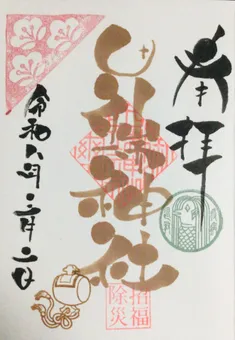 奉拝
神社
令和八年二月二日
招福
除災